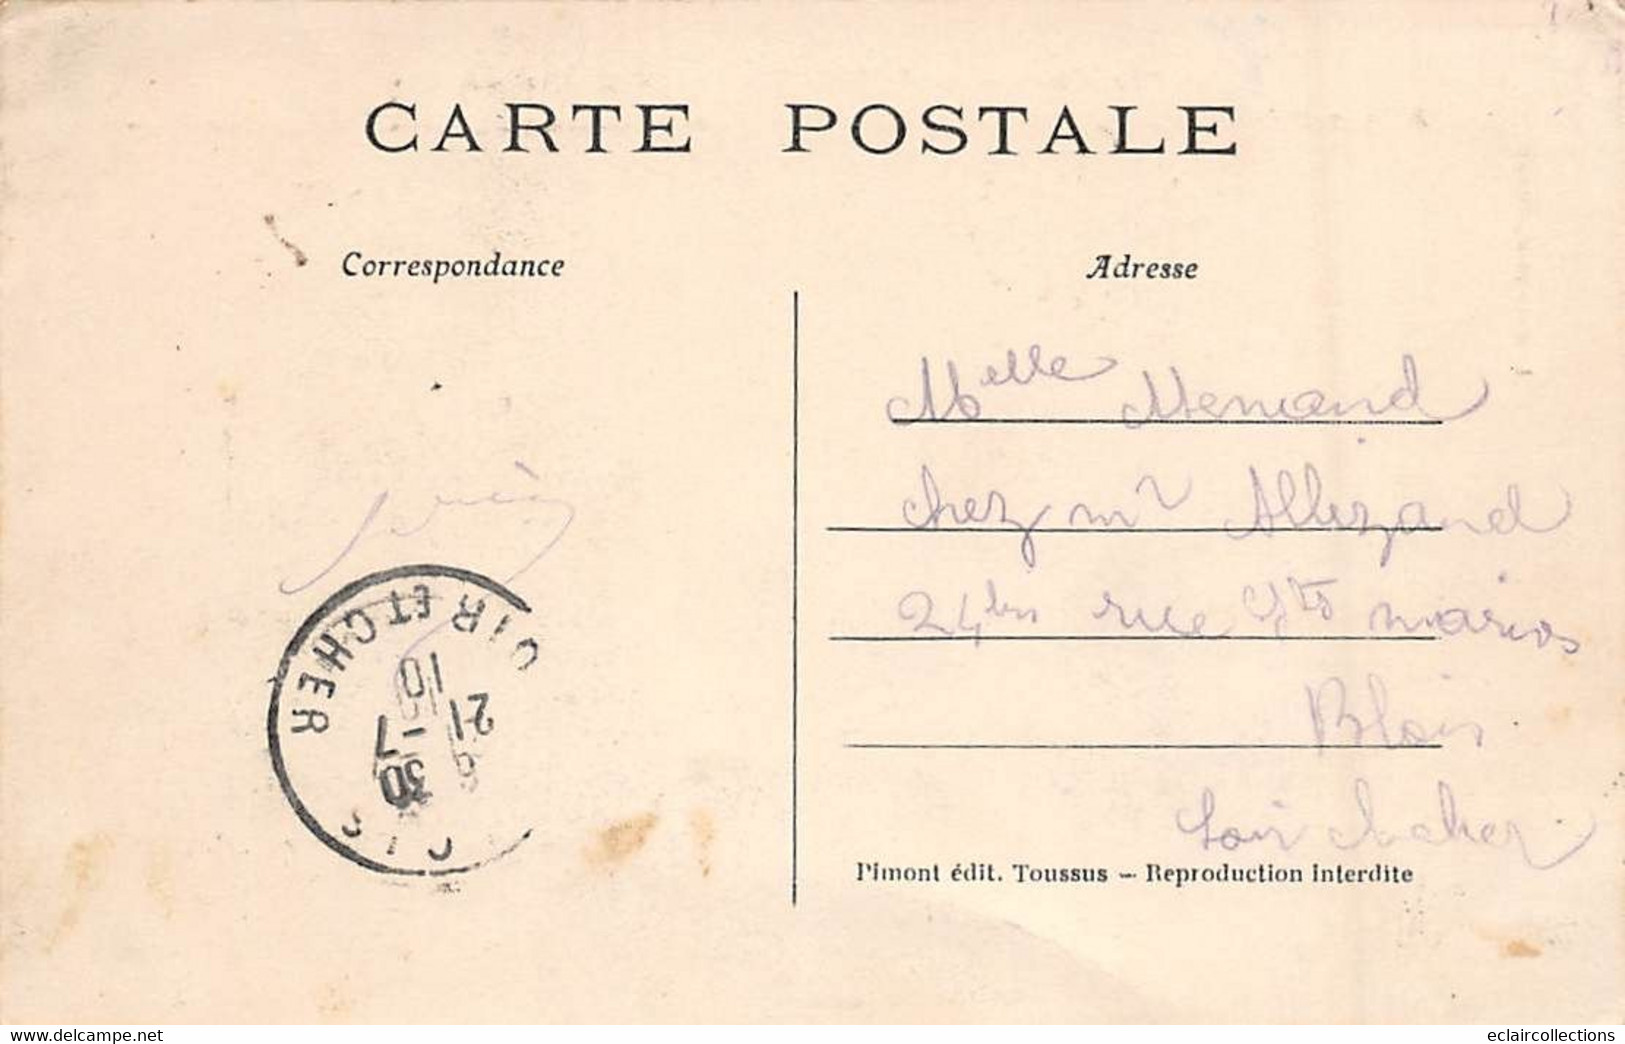 CARTE POSTALE
Correspondance
Adresse
Melle Menand
chez mr Allizand
24 bis rue
Blois
Loir et cher
LOIR ET CHER
21
10
30 -7
10
Pimont édit. Toussus — Reproduction interdite
www.delcampe.net
eclaircollections